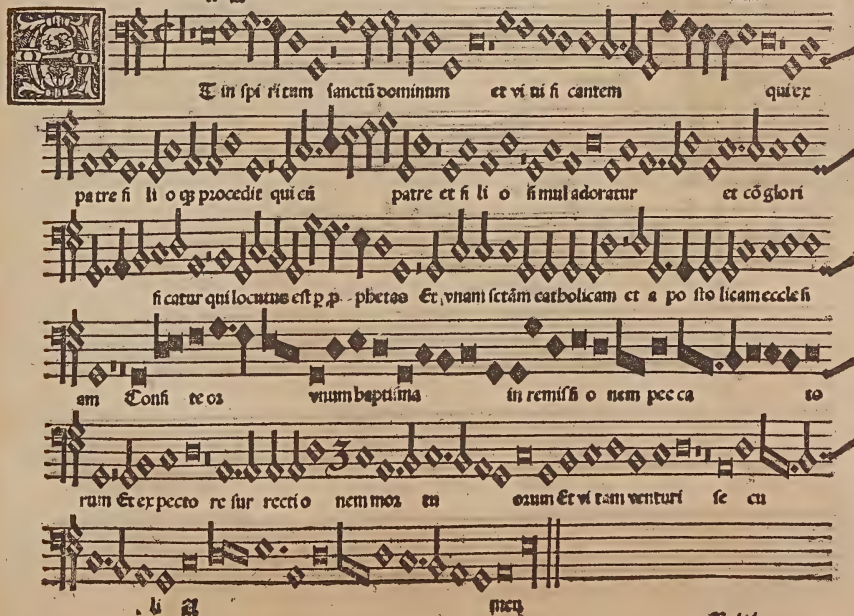 ET in spi ritum sanctū dominum et vi vi fi cantem qui ex
patre fi li o qʒ procedit qui cū patre et fi li o simul adoratur et cō glori
ficatur qui locutus est p̱ p̱ phetas Et vnam sctām catholicam et a po sto licam eccle si
am Confi te or vnum baptisma in remissi o nem pec ca to
rum Et ex pecto re sur recti o nem mor tu orum Et vi tam venturi se cu
li A men